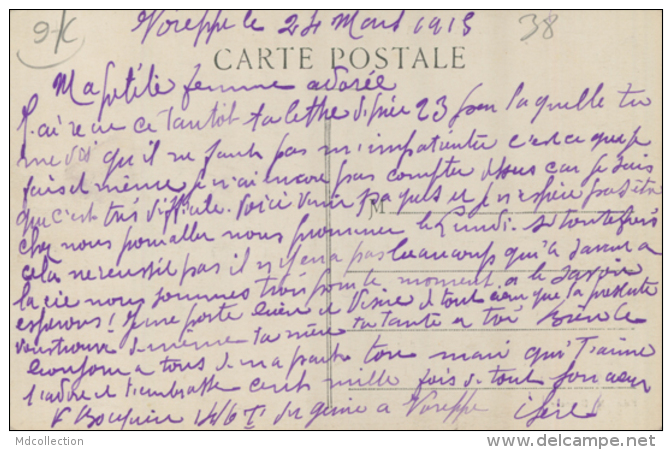 9-K
38
Voreppe le 24 Mars 1915
CARTE POSTALE
Ma petite femme adorée
J'ai recu ce tantôt ta lettre du 23 dans laquelle tu
me dis qu'il ne faut pas m'impatienter c'est ce que je
fais et même je n'ai encore pas compter dessus car je sais
que c'est très difficile. voici venir paques et je n'espère pas être
chez nous pour aller nous promener le Lundi. si toutefois
cela ne reussit pas il n'y en a pas beaucoup qu'a
la vie nous sommes trois pour le moment a le savoir
esperons! Je me porte bien et désire de tout cœur que la présente
vous trouve de même ta mère ta tante et toi bien le
bonjour a tous de ma part ton mari qui T'aime
t'adore et t'embrasse cent mille fois de tout son cœur
14/6 T du génie a Voreppe Isère
Mdcollection
www.delcampe.net